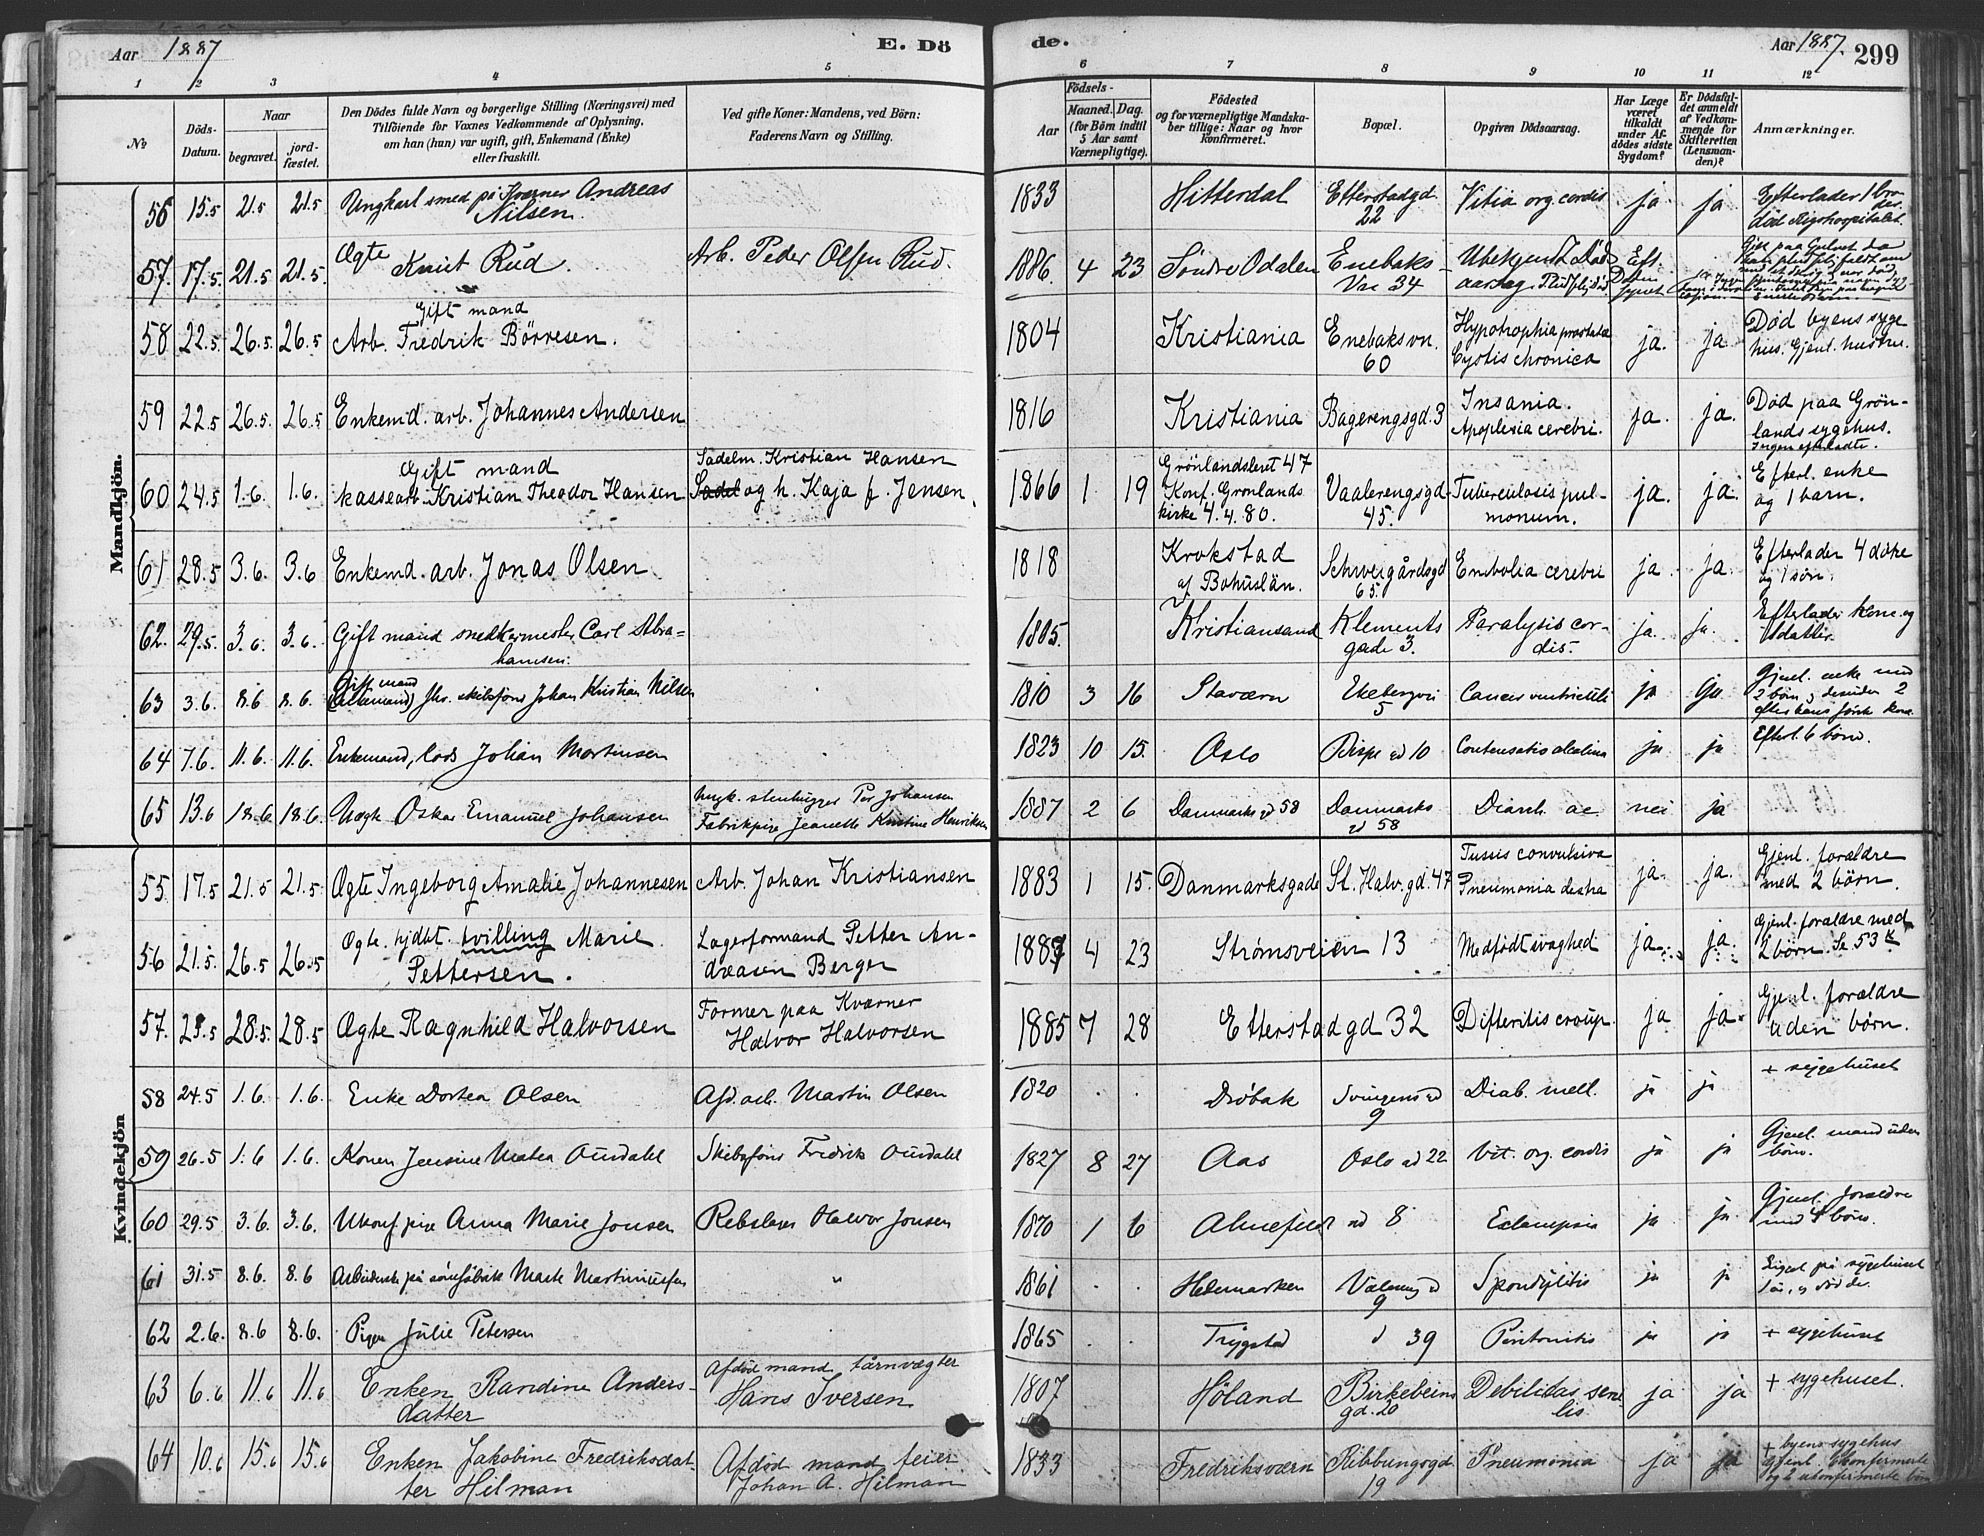 Aar 1887
E. Dö
de.
Aar 1887.
299
1 2 3 4 5 6 7 8 9 10 11 12
№
Döds-Datum.
Naar
begravet.
jord-fæstet.
Den Dödes fulde Navn og borgerlige Stilling (Næringsvei) med
Tilföiende for Voxnes Vedkommende af Oplysning,
om han (hun) var ugift, gift, Enkemand (Enke)
eller fraskilt.
Ved gifte Koner: Mandens, ved Börn:
Faderens Navn og Stilling.
Födsels-
Aar
Maaned.
Dag.
(for Börn indtil
5 Aar samt
Værnepligtige).
Födested
og for værnepligtige Mandska-
ber tillige: Naar og hvor
konfirmeret.
Bopæl.
Opgiven Dödsaarsag.
Har Læge
været
tilkaldt
under Af-
dödes sidste
Sygdom?
Er Dödsfal-
det anmeldt
af Vedkom-
mende for
Skifteretten
(Lensman-
den)?
Anmærkninger.
Mandkjön.
56 15.5 21.5 21.5 Ungkarl smed på Kværner Andreas Nilsen. 1833 Hitterdal Etterstadgd 22 Vitia org. cordis ja ja Efterlader 1 bro-der. död Rigshospitalet.
57. 17.5 21.5 21.5 Ægte Knut Rud. Arb. Peder Olsen Rud. 1886. 4 23 Söndre Odalen Enebaks-Vn 34 Ubekjendt Döds-aarsag.
58 22.5 26.5 26.5 Gift mand Arb. Fredrik Börresen. 1804 Kristiania Enebaksvn. 60 Hypotrophia prostatæ Cystis chronica ja. ja Död byens syge hus. Gjenl. hustru.
59 22.5 26.5. 26.5 Enkemd. arb. Johannes Andersen 1816 Kristiania Bagerengsgd. 3 Insania. Apoplexia cerebri. ja. ja. Död paa Grön-lands sygehus. Ingen efterladte.
60 24.5 1.6. 1.6. Gift mand kassearb. Kristian Theodor Hansen Sadelm. Kristian Hansen og h. Kaja f. Jensen. 1866 1 19 Grönlandsleret 47 Konf. Grönlands kirke 4.4.80. Vaalerengsgd. 45. Tuberculosis pul-monum. ja. ja. Efterl. enke og 1 barn.
61 28.5 3.6. 3.6 Enkemd. arb. Jonas Olsen. 1818 Krokstad af Bohuslän. Schweigårdsgd 65. Embolia cerebri ja. ja. Efterlader 4 dötre og 1 sön.
62. 29.5 3.6. 3.6. Gift mand snedkermester Carl Abra-hamsen. 1805. Kristiansand Klements gade 3. Paralysis cor-dis. ja. ja. Efterlader kone og datter.
63 3.6. 8.6 8.6. Gift mand (Enkemand) fhv. skibsförer Johan Kristian Nilsen 1810 3 16 Staværn Ekebergvei 5 Cancer ventriculi ja ja Gjenl. enke med 2 börn, desuden 2 efter hans förste kone.
64 7.6. 11.6. 11.6. Enkemand, lods Johan Martinsen 1823 10 15. Oslo Bispegd 10 ja ja Efterl. 6 börn.
65 13.6 18.6. 18.6. Uægte Oskar Emanuel Johansen Ungk. stenhugger Per Johansen Fabrikpige Jeanette Kristine Henriksen 1887 2 6 Danmarksgd 58 Danmarks gd 58 Diarrh. ac nei ja
Kvindekjön
55 17.5 21.5 21.5 Ægte Ingeborg Amalie Johannesen Arb. Johan Kristiansen 1883 1 15. Danmarksgade St. Halv. gd. 47 Tussis convulsiva Pneumonia dextra ja. ja. Gjenl. forældre med 2 börn.
56 21.5. 26.5 26.5 Ægte. hjdbt. tvilling Marie Pettersen. Lagerformand Petter An-dreasen Berger 1887 4 23 Strömsveien 13 Medfödt svaghed ja. ja. Gjenl. forældre med 2 börn. Se 53 K
57. 23.5 28.5. 28.5 Ægte Ragnhild Halvorsen Former paa Kværner Halvor Halvorsen 1885 7 28 Etterstadgd 32 Difteritis croup. ja ja. Gjenl. forældre uden börn.
58 24.5 1.6. 1.6. Enke Dortea Olsen Afd. arb. Martin Olsen 1820 . . Dröbak Svingensgd 9 Diab. mell. ja ja + sygehuset
59 26.5 1.6 1.6. Konen Jensine Matea Ourdahl Skibsförer Fredrik Ourdahl 1827 8 27 Aas Oslo gd 22 Vit. org. cordis ja ja Gjenl. mand uden börn.
60 29.5 3.6. 3.6. Ukonf. pige Anna Marie Jonsen Rebslager Halvor Jonsen 1870 1 6 gd 8 Eclampsia ja ja. Gjenl. forældre med 4 börn.
61 31.5 8.6. 8.6 Arbeiderske på Marte Martinussen " 1861 . . Hedemarken Valerengd 9 Spondylitis ja ja sygehuset
62 2.6. 8.6 8.6. Pigen Julie Petersen 1865 . . Trygstad d 39 Peritonitis ja ja + sygehuset
63 6.6 11.6 11.6 Enken Randine Anders-datter Afdöd mand tårnvægter Hans Iversen 1807 Höland Birkebeins gd. 20 Debilitas seni-lis ja ja + sygehuset.
64 10.6 15.6 15.6 Enken Jakobine Fredriksdat-ter Hilman Afdöd mand feier Johan A. Hilman 1833 Fredriksværn Ribbungsgd 19 Pneumonia ja ja + byens sygehus Gjenl. 6 konfirmerte og 2 ukonfirmerte börn